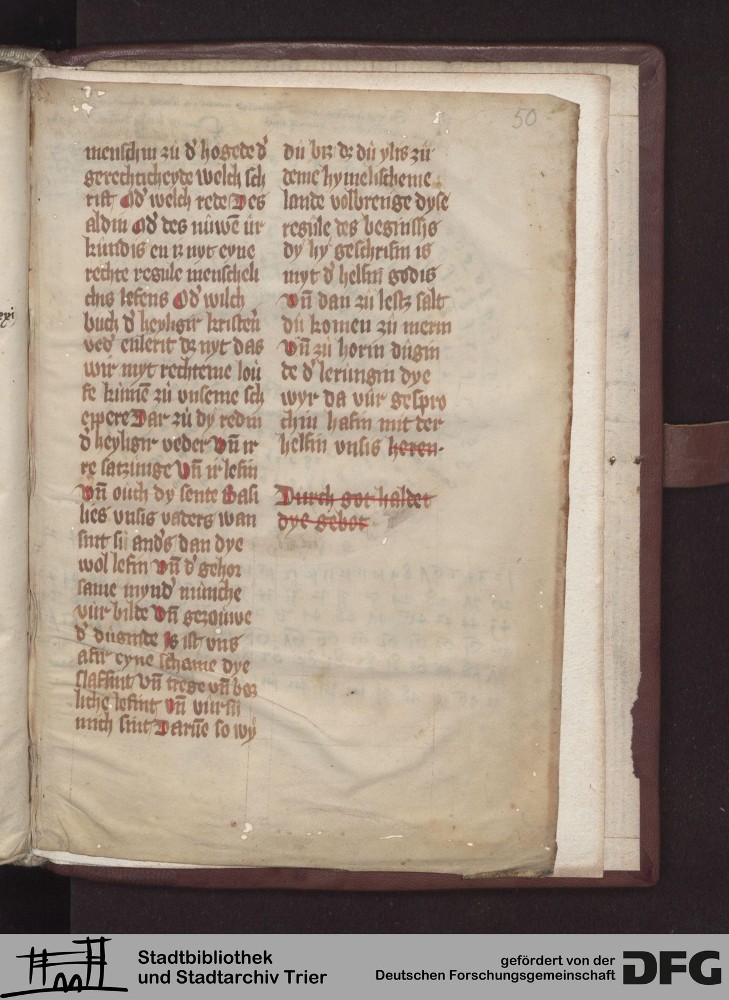 50
menschin zu d' hogede d'
gerechticheyde welch sch
rift Od' welch rede Des
aldin Od' des nuwē ur
kundis en iz nyt eyne
rechte regule menscheli
chis lefens Od' wilch
buch d' heyligir kristē
ved' enlerit dz nyt das
wir myt rechteme lou
fe kumē zu unseme sch
eppere Dar zu dy redin
d' heyligir veder Vn̄ ir
re satzunge Vn̄ ir lefin
Vn̄ ouch dy sente Basi
lies vnsis vaders wan
sint si and's dan dye
wol lefin Vn̄ d' gehor
same mynd' munche
vur bilde Vn̄ gezouwe
d' duginde Is ist vns
afir eyne schame dye
slaffint vn̄ trege vn̄ boz
liche lefint Vn̄ vur su
mich sint Darūe so wy
du biz dz du ylis zu
deme hymelischeme
lande volbrenge dyse
regule des beginsis
dy hy geschrifin is
myt d' helfin godis
Vn̄ dan zu lestz salt
du komen zu merin
Vn̄ zu horin dugin
de d' lerungin dye
wyr da vur gespro
chin hafin mit der
helfin vnsis heren.
Durch got haldet
dye gebot
Stadtbibliothek
und Stadtarchiv Trier
gefördert von der
Deutschen Forschungsgemeinschaft
DFG